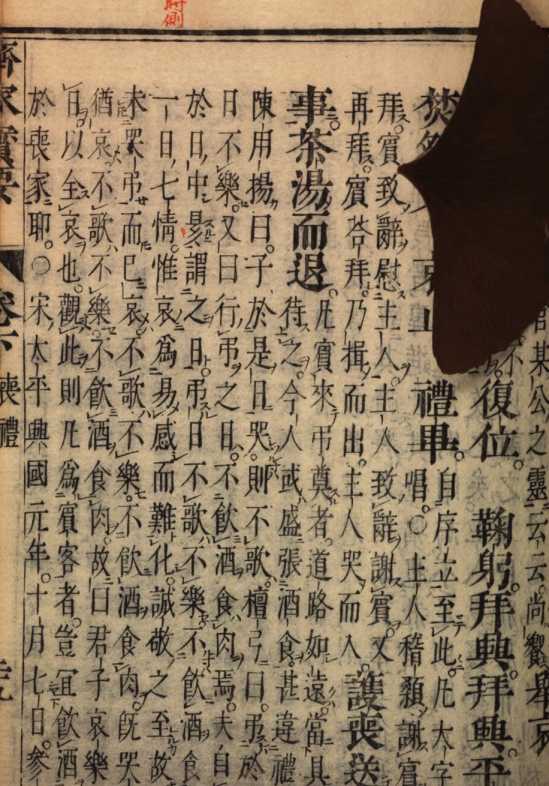 郎某公之靈云云尚饗擧哀
不復位。鞠躬拜興拜興平
焚
哀止
禮畢。自序立至此。凡大字
唱。〇主人稽顙謝賓
拜。賓致辭慰主人。主人致辭謝賓又
再拜賓荅拜。乃揖而出。主人哭而入。護喪送
事茶湯而退。凡賓來弔奠者。道路如遠。當具
待之。今人或盛張酒食。甚違禮
陳用揚曰。子於是日哭。則不歌。檀弓曰。弔於
日不樂。又曰行弔之日。不飲酒食肉焉。夫自
於日中晷謂之日。弔日不歌不樂不飲酒食
一日七情。惟哀爲易感而難化。誠敬之至故
未哭弔而已哀不歌不樂。不飲酒食肉。旣哭
猶哀不歌不樂不飲酒食肉。故曰君子哀樂
日以全哀也。觀此則凡爲賓客者。豈宜飲酒
於喪家耶。〇宋太平興國元年。十月七日。參
齊家寶要 卷下 喪禮
封側